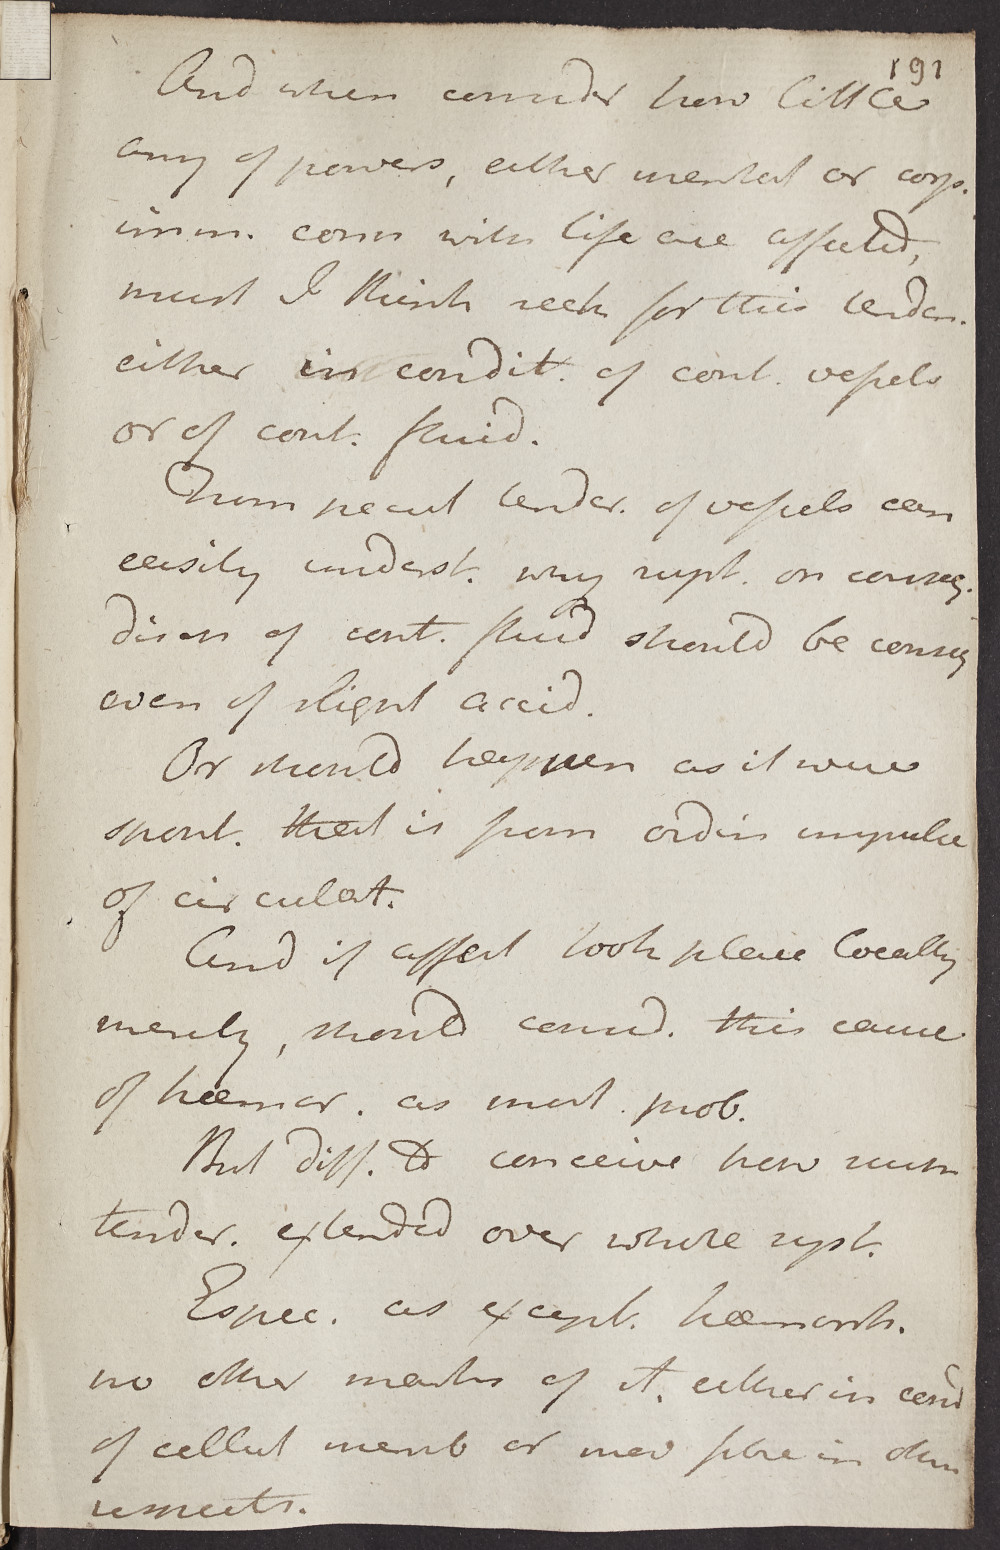 191
And when consider how little
any of powers, either mental or corp.
imm. conn with life are affected,
must I think seek for this tenden.
either in condit. of cont. vessels
or of cont. fluid.
From pecul tender. of vessels can
easily underst. why rupt. or conseq.
disch of cont. fluid should be conseq
even of slight accid.
Or should happen as it were
spont. that is from ordin impulse
of circulat.
And if affect took place locally
merely, should consid. this cause
of haemor. as most prob.
But diff. to conceive how such
tender. extended over whole syst.
Espec. as except. haemorrh.
no other marks of it. either in cond
of cellul memb or mov fibre in